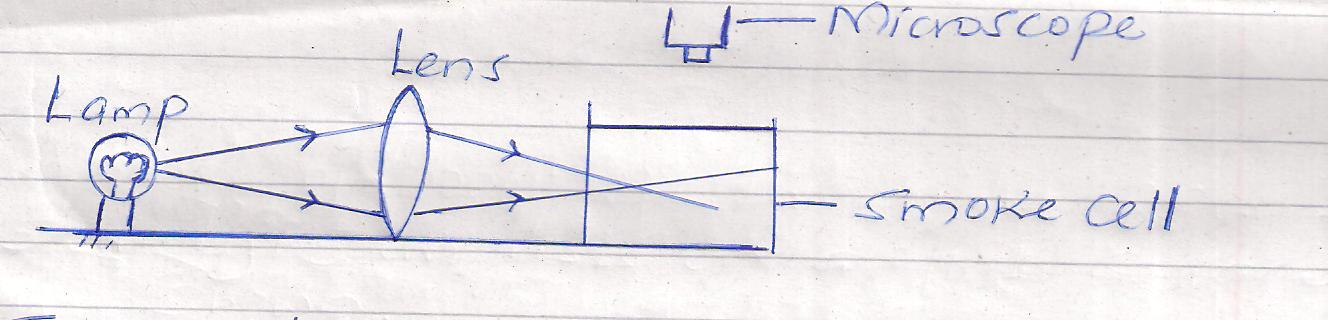 Microscope
Lens
Lamp
Smoke Cell